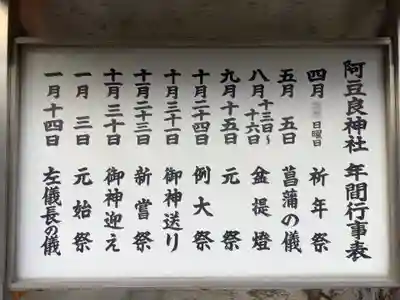 阿豆良神社 年間行事表
四月 日曜日 祈年祭
五月 五日 菖蒲の儀
八月 十三日～十六日 盆提燈
九月十五日 元祭
十月二十四日 例大祭
十月三十一日 御神送り
十一月二十三日 新嘗祭
十一月三十日 御神迎え
一月 三日 元始祭
一月十四日 左儀長の儀